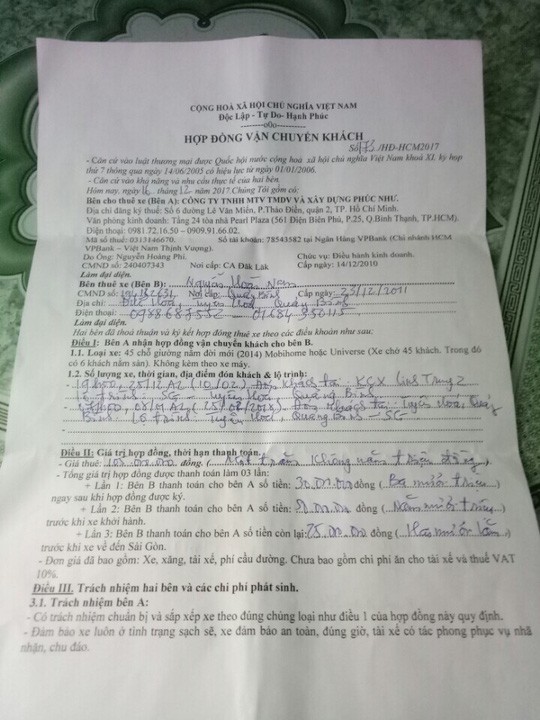 CỘNG HOÀ XÃ HỘI CHỦ NGHĨA VIỆT NAM
Độc Lập - Tự Do- Hạnh Phúc
--------o0o--------
HỢP ĐỒNG VẬN CHUYỂN KHÁCH
/HĐ-HCM2017
- Căn cứ vào luật thương mại được Quốc hội nước cộng hoà xã hội chủ nghĩa Việt Nam khoá XI, kỳ họp
thứ 7 thông qua ngày 14/06/2005 có hiệu lực từ ngày 01/01/2006.
- Căn cứ vào khả năng và nhu cầu thực tế của hai bên.
Hôm nay, ngày 16 tháng 12 năm 2017.Chúng Tôi gồm có:
Bên cho thuê xe (Bên A): CÔNG TY TNHH MTV TMDV VÀ XÂY DỰNG PHÚC NHƯ.
Địa chỉ đăng ký thuế: Số 6 đường Lê Văn Miến, P.Thảo Điền, quận 2, TP. Hồ Chí Minh.
Văn phòng kinh doanh: Tầng 24 tòa nhà Pearl Plaza (561 Điện Biên Phủ, P.25, Q.Bình Thạnh, TP.HCM).
Điện thoại: 0981.72.16.50 – 0909.91.66.02.
Mã số thuế: 0313146670. Số tài khoản: 78543582 tại Ngân Hàng VPBank (Chi nhánh HCM
VPBank – Việt Nam Thịnh Vượng).
Do Ông: Nguyễn Hoàng Phi. Chức vụ: Điều hành kinh doanh.
CMND số: 240407343 Nơi cấp: CA Đăk Lăk Cấp ngày: 14/12/2010
Làm đại diện.
Bên thuê xe (Bên B): Nguyễn Hoài Nam
CMND số: Nơi cấp: Quảng Bình Cấp ngày: 23/12/2011
Địa chỉ: Tuyên Hoá, Quảng Bình
Điện thoại: 0988687552 – 01684930115
Làm đại diện.
Hai bên đã thoả thuận và ký kết hợp đồng thuê xe theo các điều khoản như sau:
Điều I: Bên A nhận hợp đồng vận chuyển khách cho bên B.
1.1. Loại xe: 45 chỗ giường nằm đời mới (2014) Mobihome hoặc Universe (Xe chở 45 khách. Trong đó
có 6 khách nằm sàn). Không kèm theo xe máy.
1.2. Số lượng xe, thời gian, địa điểm đón khách & lộ trình:
- 25/12 AL (10/02) Đón khách tại: KCX Linh Trung 2
Lộ trình: SG – Tuyên Hoá, Quảng Bình
- AL (25/02/2018) Đón khách tại: Tuyên Hoá, Quảng
Bình. Lộ trình: Tuyên Hoá, Quảng Bình – SG
Điều II: Giá trị hợp đồng, thời hạn thanh toán:
- Giá thuê: 105.000.000 đồng. (Một trăm không năm triệu đồng)
- Tổng giá trị hợp đồng được thanh toán làm 03 lần:
+ Lần 1: Bên B thanh toán cho bên A số tiền: 30.000.000 đồng (Ba mươi triệu)
ngay sau khi hợp đồng được ký.
+ Lần 2: Bên B thanh toán cho bên A số tiền: 50.000.000 đồng (Năm mươi triệu)
trước khi xe khởi hành.
+ Lần 3: Bên B thanh toán cho bên A số tiền còn lại: 25.000.000 đồng (Hai mươi lăm)
trước khi xe về đến Sài Gòn.
- Đơn giá đã bao gồm: Xe, xăng, tài xế, phí cầu đường. Chưa bao gồm chi phí ăn cho tài xế và thuế VAT
10%.
Điều III. Trách nhiệm hai bên và các chi phí phát sinh.
3.1. Trách nhiệm bên A:
- Có trách nhiệm chuẩn bị và sắp xếp xe theo đúng chủng loại như điều 1 của hợp đồng này quy định.
- Đảm bảo xe luôn ở tình trạng sạch sẽ, xe đảm bảo an toàn, đúng giờ, tài xế có tác phong phục vụ nhã
nhặn, chu đáo.